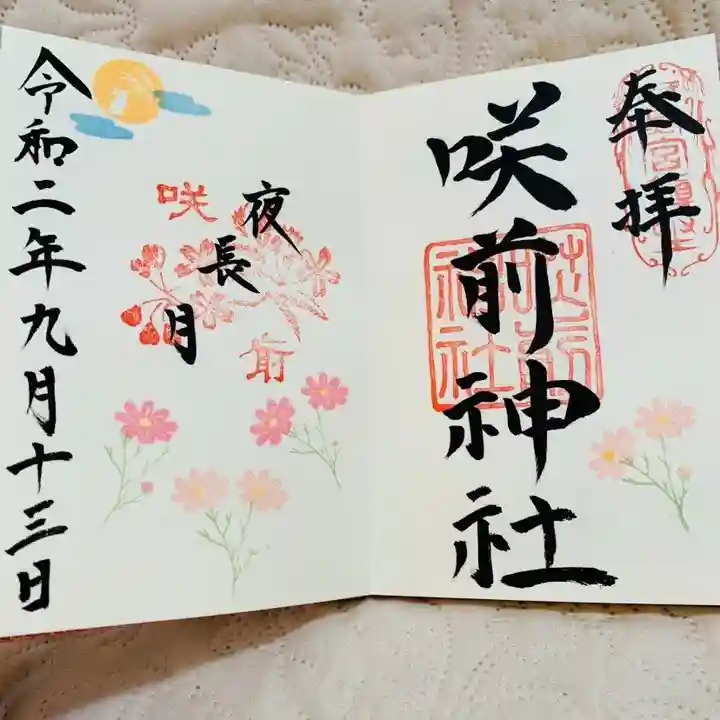 奉拝
咲前神社
咲前神社
夜長月
咲前
令和二年九月十三日